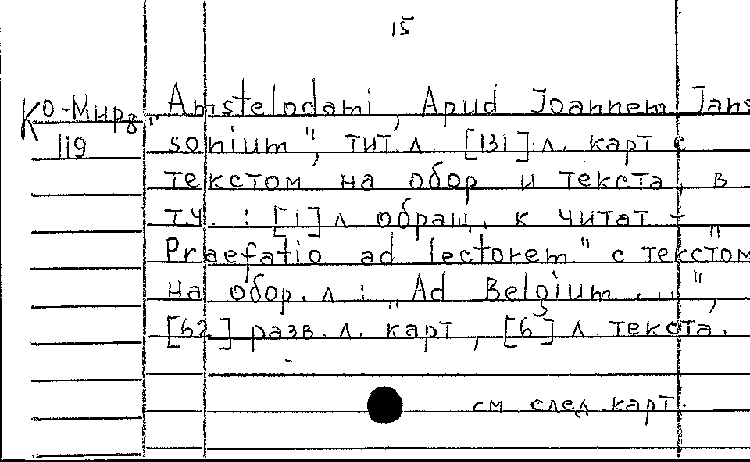 15
Ко-Мира "Amstelodami, Apud Joannem Jans
119 sonium", тит. л. [131] л. карт с
текстом на обор и текста, в
т.ч. : [1] л обращ. к читат -
"Praefatio ad lectorem" с текстом
на обор. л : "Ad Belgium ...",
[62] разв. л. карт, [6] л текста.
см след карт.